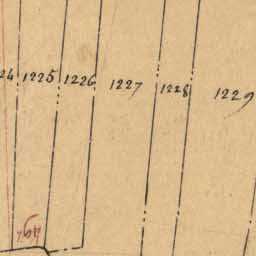 24 1225 1226 1227 1228 1229